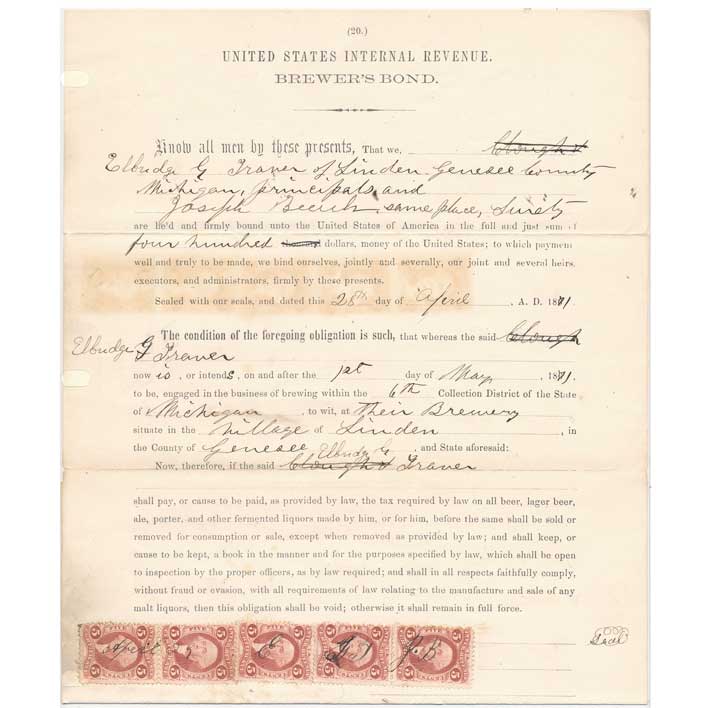 (20.)
UNITED STATES INTERNAL REVENUE.
BREWER'S BOND.
Know all men by these presents, That we, Clough &
Elbridge G Traver of Linden Genesee County
Michigan, principals and
Joseph Beeuh, same place, Surety
are held and firmly bound unto the United States of America in the full and just sum of
four hundred dollars, money of the United States; to which payment
well and truly to be made, we bind ourselves, jointly and severally, our joint and several heirs,
executors, and administrators, firmly by these presents.
Sealed with our seals, and dated this 28th day of April, A. D. 1871.
The condition of the foregoing obligation is such, that whereas the said Clough
Elbridge G Traver
now is, or intends, on and after the 1st day of May, 1871,
to be, engaged in the business of brewing within the 6th Collection District of the State
of Michigan, to wit, at their Brewery
situate in the village of Linden, in
the County of Genesee, and State aforesaid:
Elbridge G
Now, therefore, if the said Clough & Traver
shall pay, or cause to be paid, as provided by law, the tax required by law on all beer, lager beer,
ale, porter, and other fermented liquors made by him, or for him, before the same shall be sold or
removed for consumption or sale, except when removed as provided by law; and shall keep, or
cause to be kept, a book in the manner and for the purposes specified by law, which shall be open
to inspection by the proper officers, as by law required; and shall in all respects faithfully comply,
without fraud or evasion, with all requirements of law relating to the manufacture and sale of any
malt liquors, then this obligation shall be void; otherwise it shall remain in full force.
Seal
5 5 5 5 5 5 5 5 5 5
April 28 E G T J. B